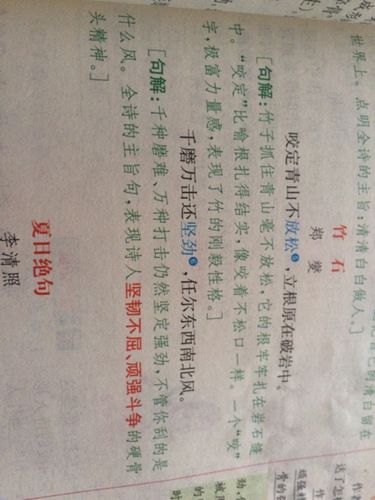 的清白留在
世界上。点明全诗的主旨:清清白白做人。]
竹石
郑燮
咬定青山不放松,立根原在破岩中。
[句解:竹子抓住青山毫不放松,它的根牢牢扎在岩石缝
中。“咬定”比喻根扎得结实,像咬着不松口一样。一个“咬”
字,极富力量感,表现了竹的刚毅性格。]
千磨万击还坚劲,任尔东西南北风。
[句解:千种磨难、万种打击仍然坚定强劲,不管你刮的是
什么风。全诗的主旨句,表现诗人坚韧不屈、顽强斗争的硬骨
头精神。]
夏日绝句
李清照
达了怎
顽强
骨的